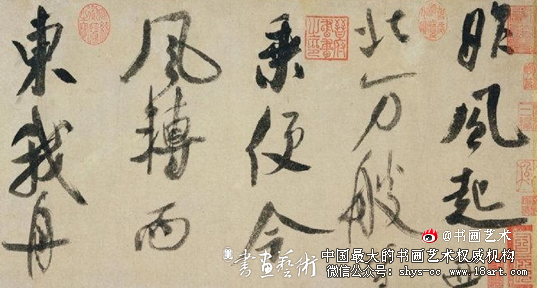 昨風起西
北万艘皆
乘便今
風轉而
東我舟
@书画艺术
書畫藝術
中国最大的书画艺术权威机构
微信公众号：shys-cc www.18art.com